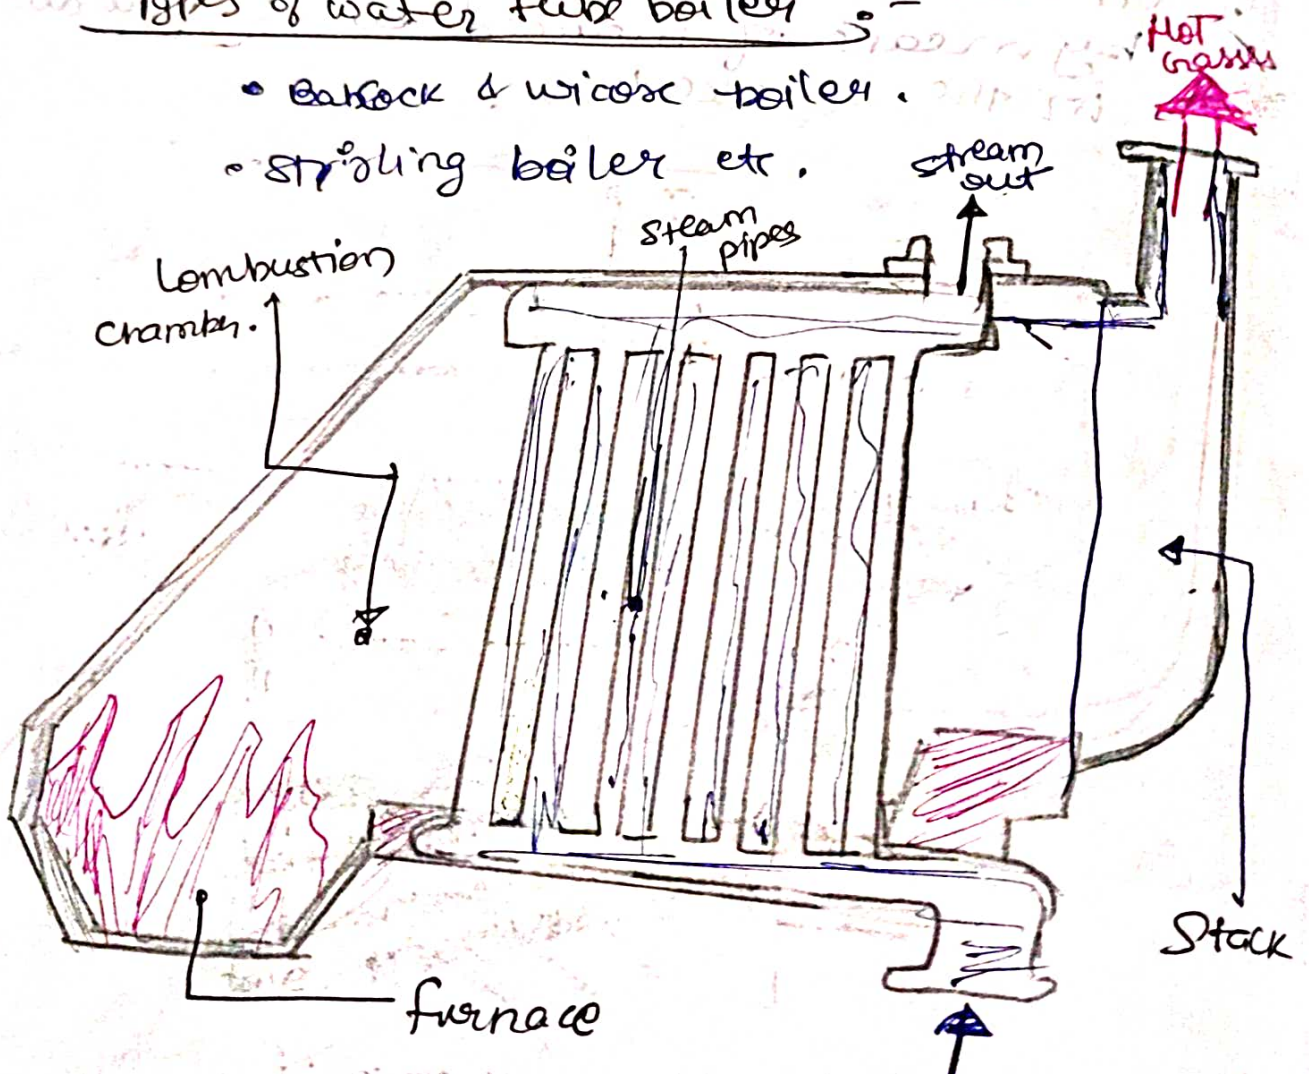 Types of water tube boiler :-
• Babcock & wicox boiler.
• Stirling boiler etc.
Hot
Gasses
stream
out
steam
pipes
Combustion
Chamber.
Stack
furnace